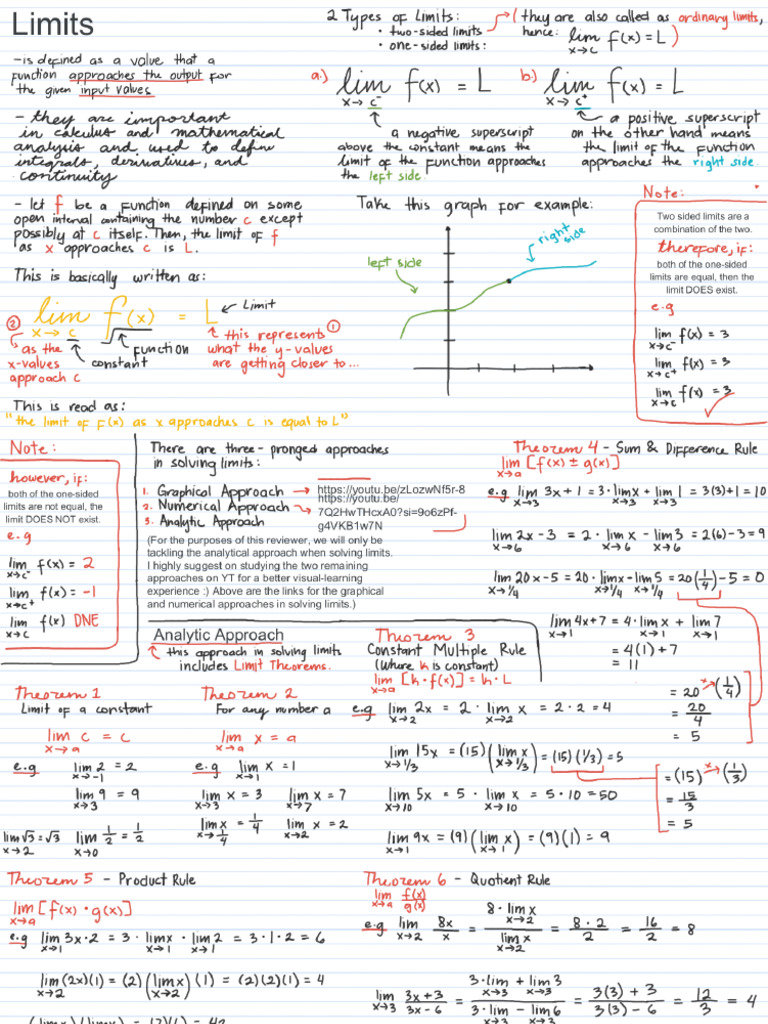 Limits
-is defined as a value that a
function approaches the output for
the given input values
- they are important
in calculus and mathematical
analysis and used to define
integrals, derivatives, and
continuity
- let f be a function defined on some
open interval containing the number c except
possibly at c itself. Then, the limit of f
as x approaches c is L.
This is basically written as:
lim f(x) = L ← Limit
x→c
② as the
x-values
approach c
constant
function
this represents ①
what the y-values
are getting closer to...
This is read as:
"the limit of f(x) as x approaches c is equal to L"
2 Types of Limits:
• two-sided limits
• one-sided limits:
(they are also called as ordinary limits,
hence: lim f(x) = L)
x→c
a.) lim f(x) = L
x→c⁻
a negative superscript
above the constant means the
limit of the function approaches
the left side.
b.) lim f(x) = L
x→c⁺
a positive superscript
on the other hand means
the limit of the function
approaches the right side.
Take this graph for example:
left side
right side
Note:
Two sided limits are a
combination of the two.
therefore, if:
both of the one-sided
limits are equal, then the
limit DOES exist.
e.g
lim f(x) = 3
x→c⁻
lim f(x) = 3
x→c⁺
lim f(x) = 3
x→c
Note:
however, if:
both of the one-sided
limits are not equal, the
limit DOES NOT exist.
e.g
lim f(x) = 2
x→c⁻
lim f(x) = -1
x→c⁺
lim f(x) DNE
x→c
There are three-pronged approaches
in solving limits:
1. Graphical Approach → https://youtu.be/zLozwNf5r-8
2. Numerical Approach → https://youtu.be/
7Q2HwTHcxA0?si=9o6zPf-
g4VKB1w7N
3. Analytic Approach
(For the purposes of this reviewer, we will only be
tackling the analytical approach when solving limits.
I highly suggest on studying the two remaining
approaches on YT for a better visual-learning
experience :) Above are the links for the graphical
and numerical approaches in solving limits.)
Analytic Approach
this approach in solving limits
includes Limit Theorems.
Theorem 1
Limit of a constant
lim c = c
x→a
e.g lim 2 = 2
x→-1
lim 9 = 9
x→3
lim √3 = √3
x→2
lim 1/2 = 1/2
x→0
Theorem 2
For any number a
lim x = a
x→a
e.g lim x = 1
x→1
lim x = 3
x→3
lim x = 7
x→7
lim x = 1/4
x→1/4
lim x = 2
x→2
Theorem 3
Constant Multiple Rule
(Where k is constant)
lim [k · f(x)] = k · L
x→a
e.g lim 2x = 2 · lim x = 2 · 2 = 4
x→2 x→2
lim 15x = (15)(lim x) = (15)(1/3) = 5
x→1/3 x→1/3
= (15) (1/3)
= 15/3
= 5
lim 5x = 5 · lim x = 5 · 10 = 50
x→10 x→10
lim 9x = (9)(lim x) = (9)(1) = 9
x→1 x→1
Theorem 4 - Sum & Difference Rule
lim [f(x) ± g(x)]
x→a
e.g lim 3x + 1 = 3 · lim x + lim 1 = 3(3)+1 = 10
x→3 x→3 x→3
lim 2x - 3 = 2 · lim x - lim 3 = 2(6) - 3 = 9
x→6 x→6 x→6
lim 20x - 5 = 20 · lim x - lim 5 = 20(1/4) - 5 = 0
x→1/4 x→1/4 x→1/4
= 20 (1/4)
= 20/4
= 5
lim 4x + 7 = 4 · lim x + lim 7
x→1 x→1 x→1
= 4(1) + 7
= 11
Theorem 5 - Product Rule
lim [f(x) · g(x)]
x→a
e.g lim 3x · 2 = 3 · lim x · lim 2 = 3 · 1 · 2 = 6
x→1 x→1 x→1
lim (2x)(1) = (2)(lim x)(1) = (2)(2)(1) = 4
x→2 x→2
Theorem 6 - Quotient Rule
lim f(x)/g(x)
x→a
e.g lim 8x/x = 8 · lim x / lim x = 8 · 2/2 = 16/2 = 8
x→2 x→2 x→2
lim 3x+3/3x-6 = 3 · lim x + lim 3 / 3 · lim x - lim 6 = 3(3) + 3/3(3) - 6 = 12/3 = 4
x→3 x→3 x→3 x→3 x→3